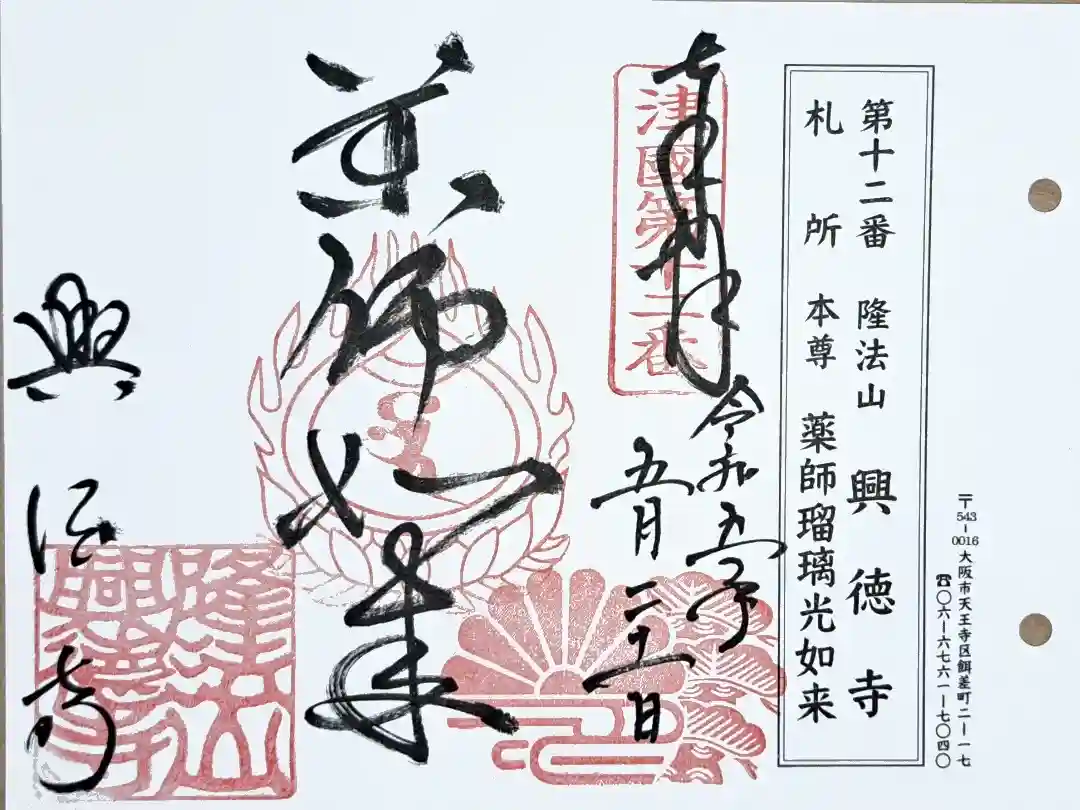 〒543-0016 大阪市天王寺区餌差町二-一七
☎〇六-六七六一-七〇四〇
第十二番 隆法山 興徳寺
札所 本尊 薬師瑠璃光如来
奉拝 令和五年
五月二十一日
津國第十二番
薬師如来
興徳寺
隆法山
興徳寺